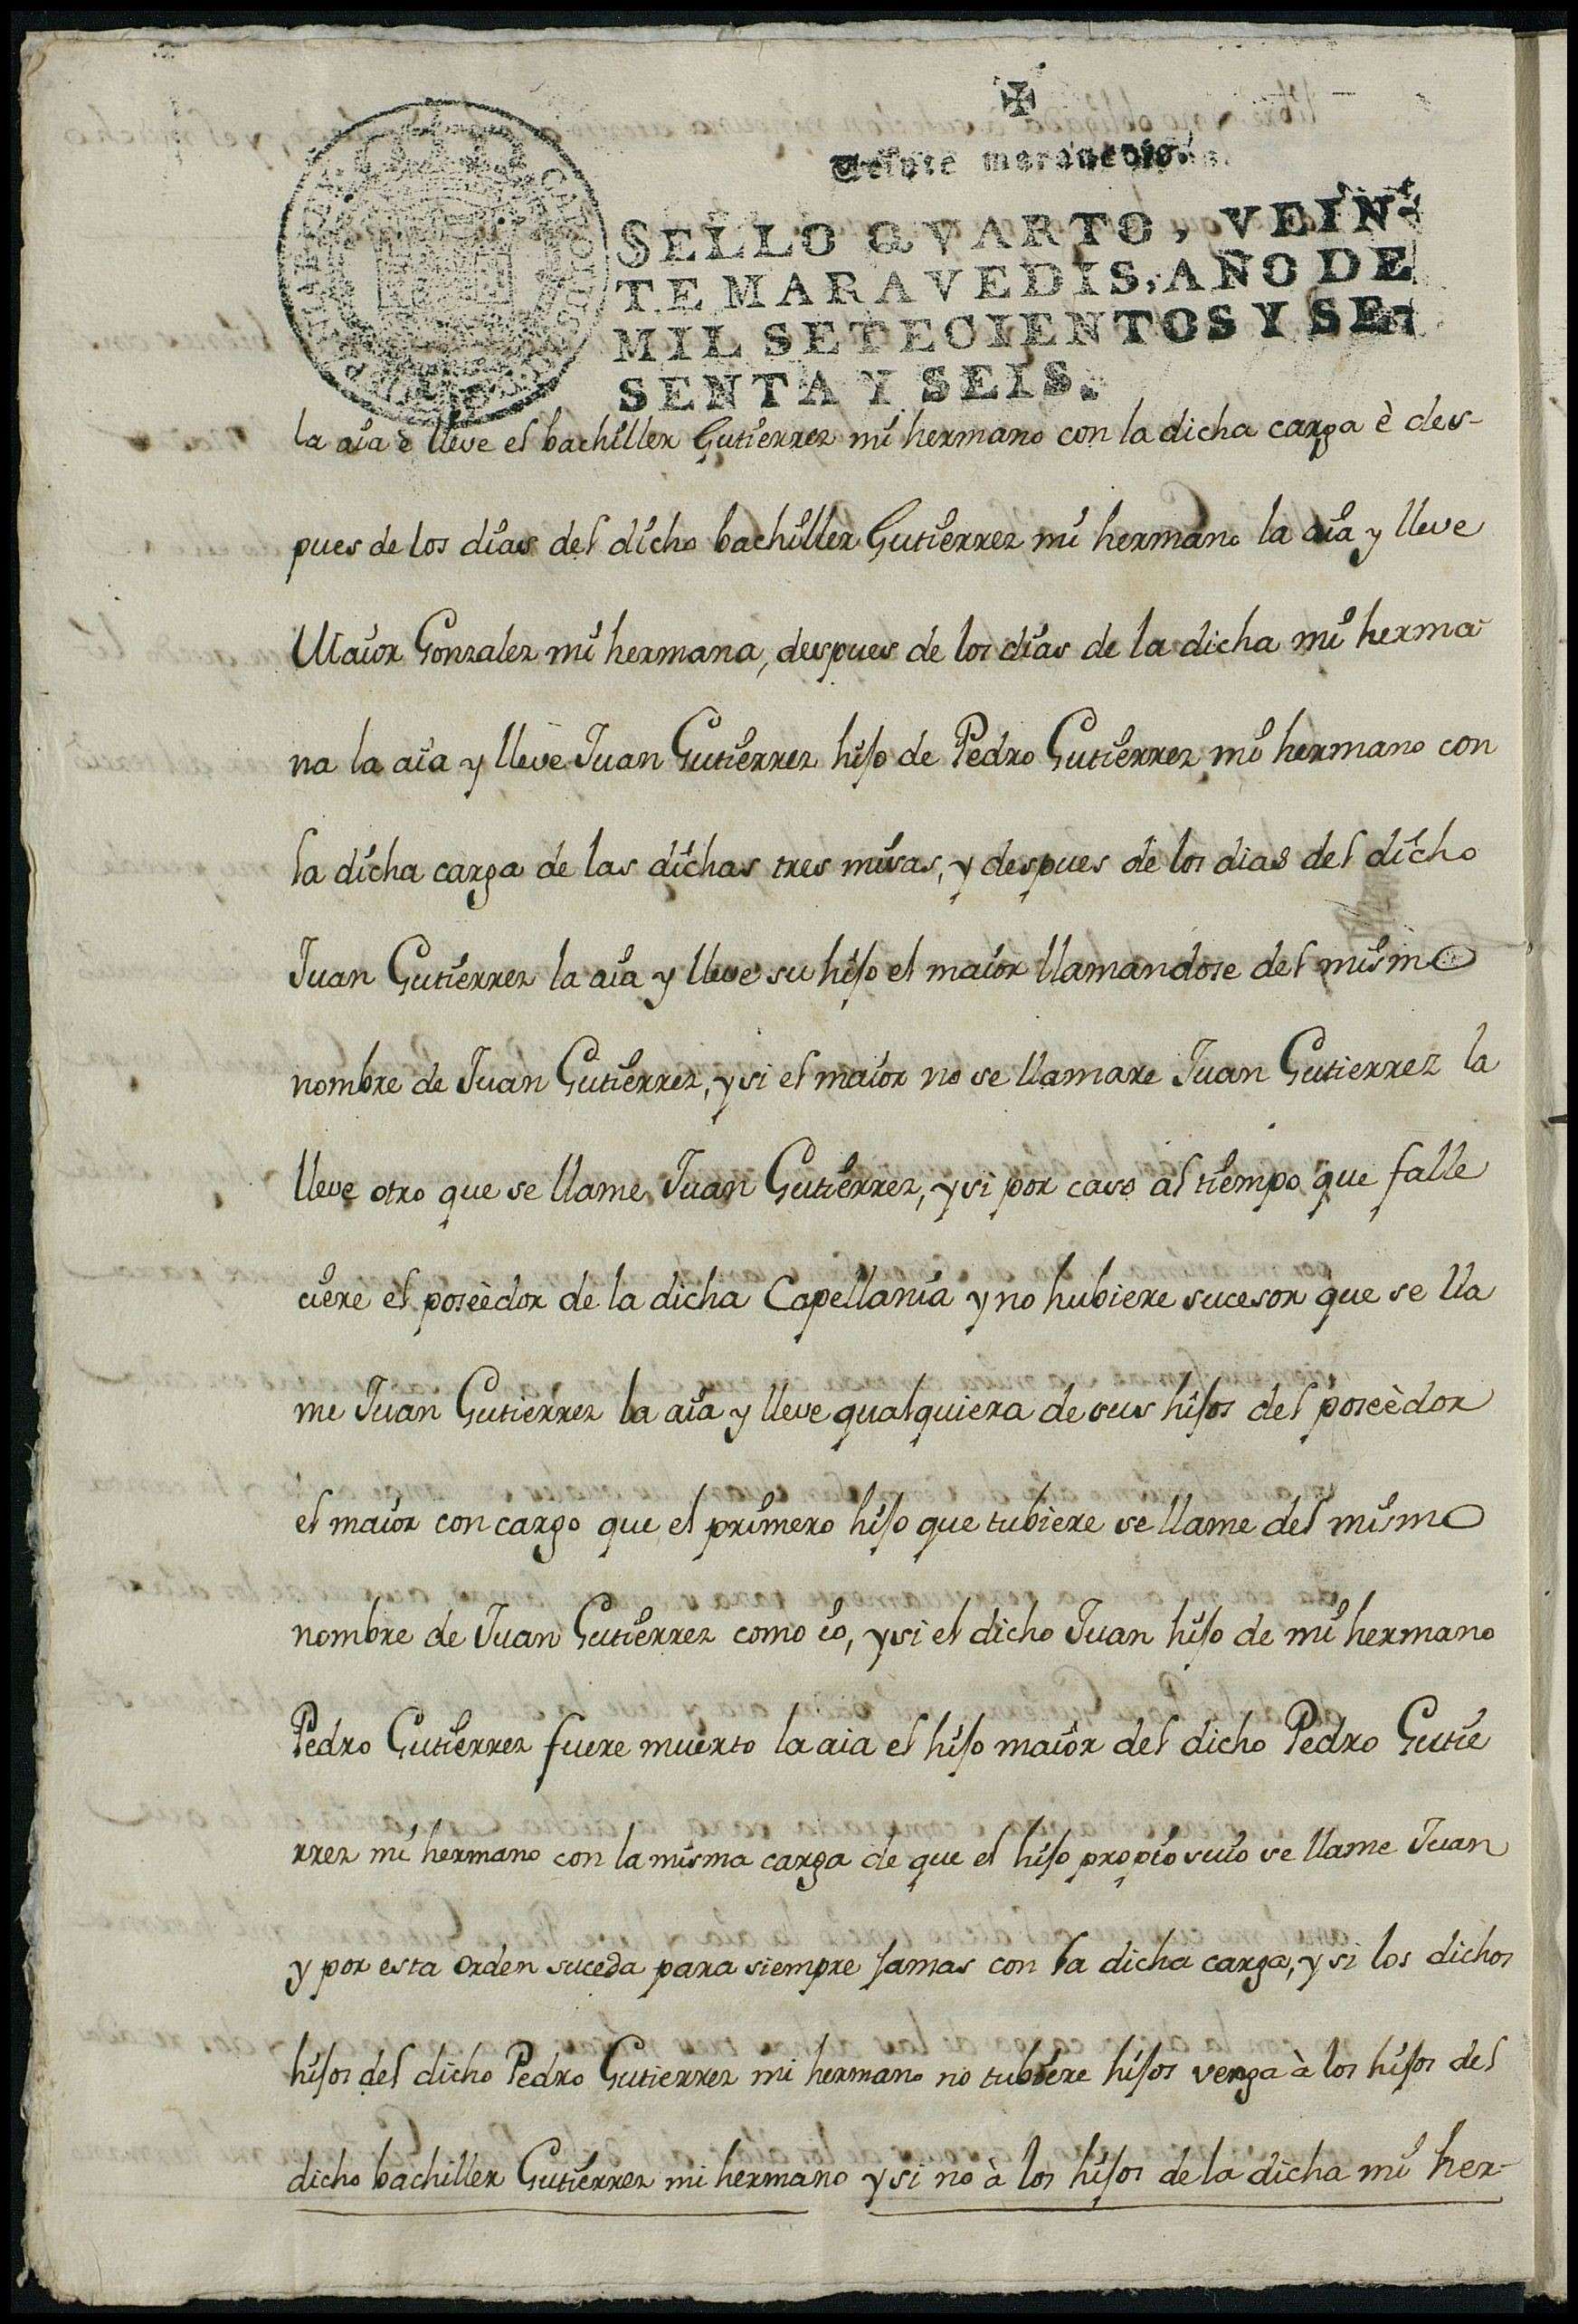 ✠
Veinte maravedis.
SELLO QVARTO, VEIN-
TE MARAVEDIS, AÑO DE
MIL SETECIENTOS Y SE-
SENTA Y SEIS.
la aia è lleve el bachiller Gutierrez mi hermano con la dicha carga è des-
pues de los dias del dicho bachiller Gutierrez mi hermano la aia y lleve
Maior Gonzalez mi hermana, despues de los dias de la dicha mi herma
na la aia y lleve Juan Gutierrez hijo de Pedro Gutierrez mi hermano con
la dicha carga de las dichas tres misas, y despues de los dias del dicho
Juan Gutierrez la aia y lleve su hijo el maior llamandose del mismo
nombre de Juan Gutierrez, y si el maior no se llamare Juan Gutierrez la
lleve otro que se llame Juan Gutierrez, y si por caso al tiempo que falle
ciere el poseèdor de la dicha Capellania y no hubiere sucesor que se lla
me Juan Gutierrez la aia y lleve qualquiera de sus hijos del poseèdor
el maior con cargo que el primero hijo que tubiere se llame del mismo
nombre de Juan Gutierrez como io, y si el dicho Juan hijo de mi hermano
Pedro Gutierrez fuere muerto la aia el hijo maior del dicho Pedro Gutie
rrez mi hermano con la misma carga de que el hijo propio suio se llame Juan
y por esta orden suceda para siempre jamas con la dicha carga, y si los dichos
hijos del dicho Pedro Gutierrez mi hermano no tubiere hijos venga à los hijos del
dicho bachiller Gutierrez mi hermano y si no à los hijos de la dicha mi her-